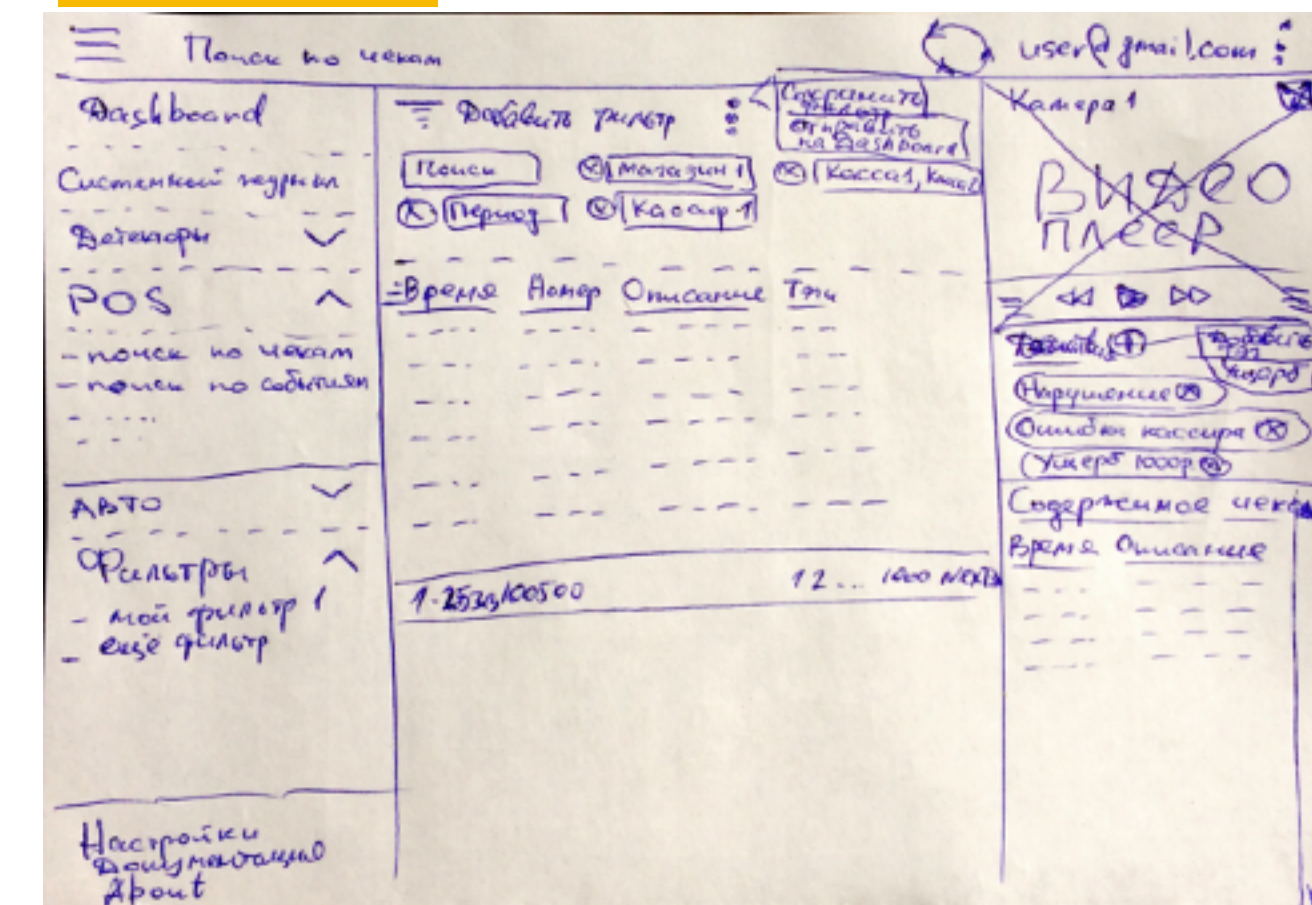 Поиск по чекам
user@gmail.com
Dashboard
Системный журнал
Детекторы
POS
- поиск по чекам
- поиск по событиям
АВТО
Фильтры
- мой фильтр 1
- ещё фильтр
Настройки
Документация
About
Добавить фильтр
Сохранить фильтр
отправить
на Dashboard
Поиск
Магазин 1
Касса1,
Период
Кассир 1
Время Номер Описание Тэги
1-25 из 100500
1 2 ... 1000 NEXT
Камера 1
ВИДЕО
ПЛЕЕР
Добавить
Ущерб
Нарушение
Ошибка кассира
Ущерб 1000р
Содержимое чека
Время Описание